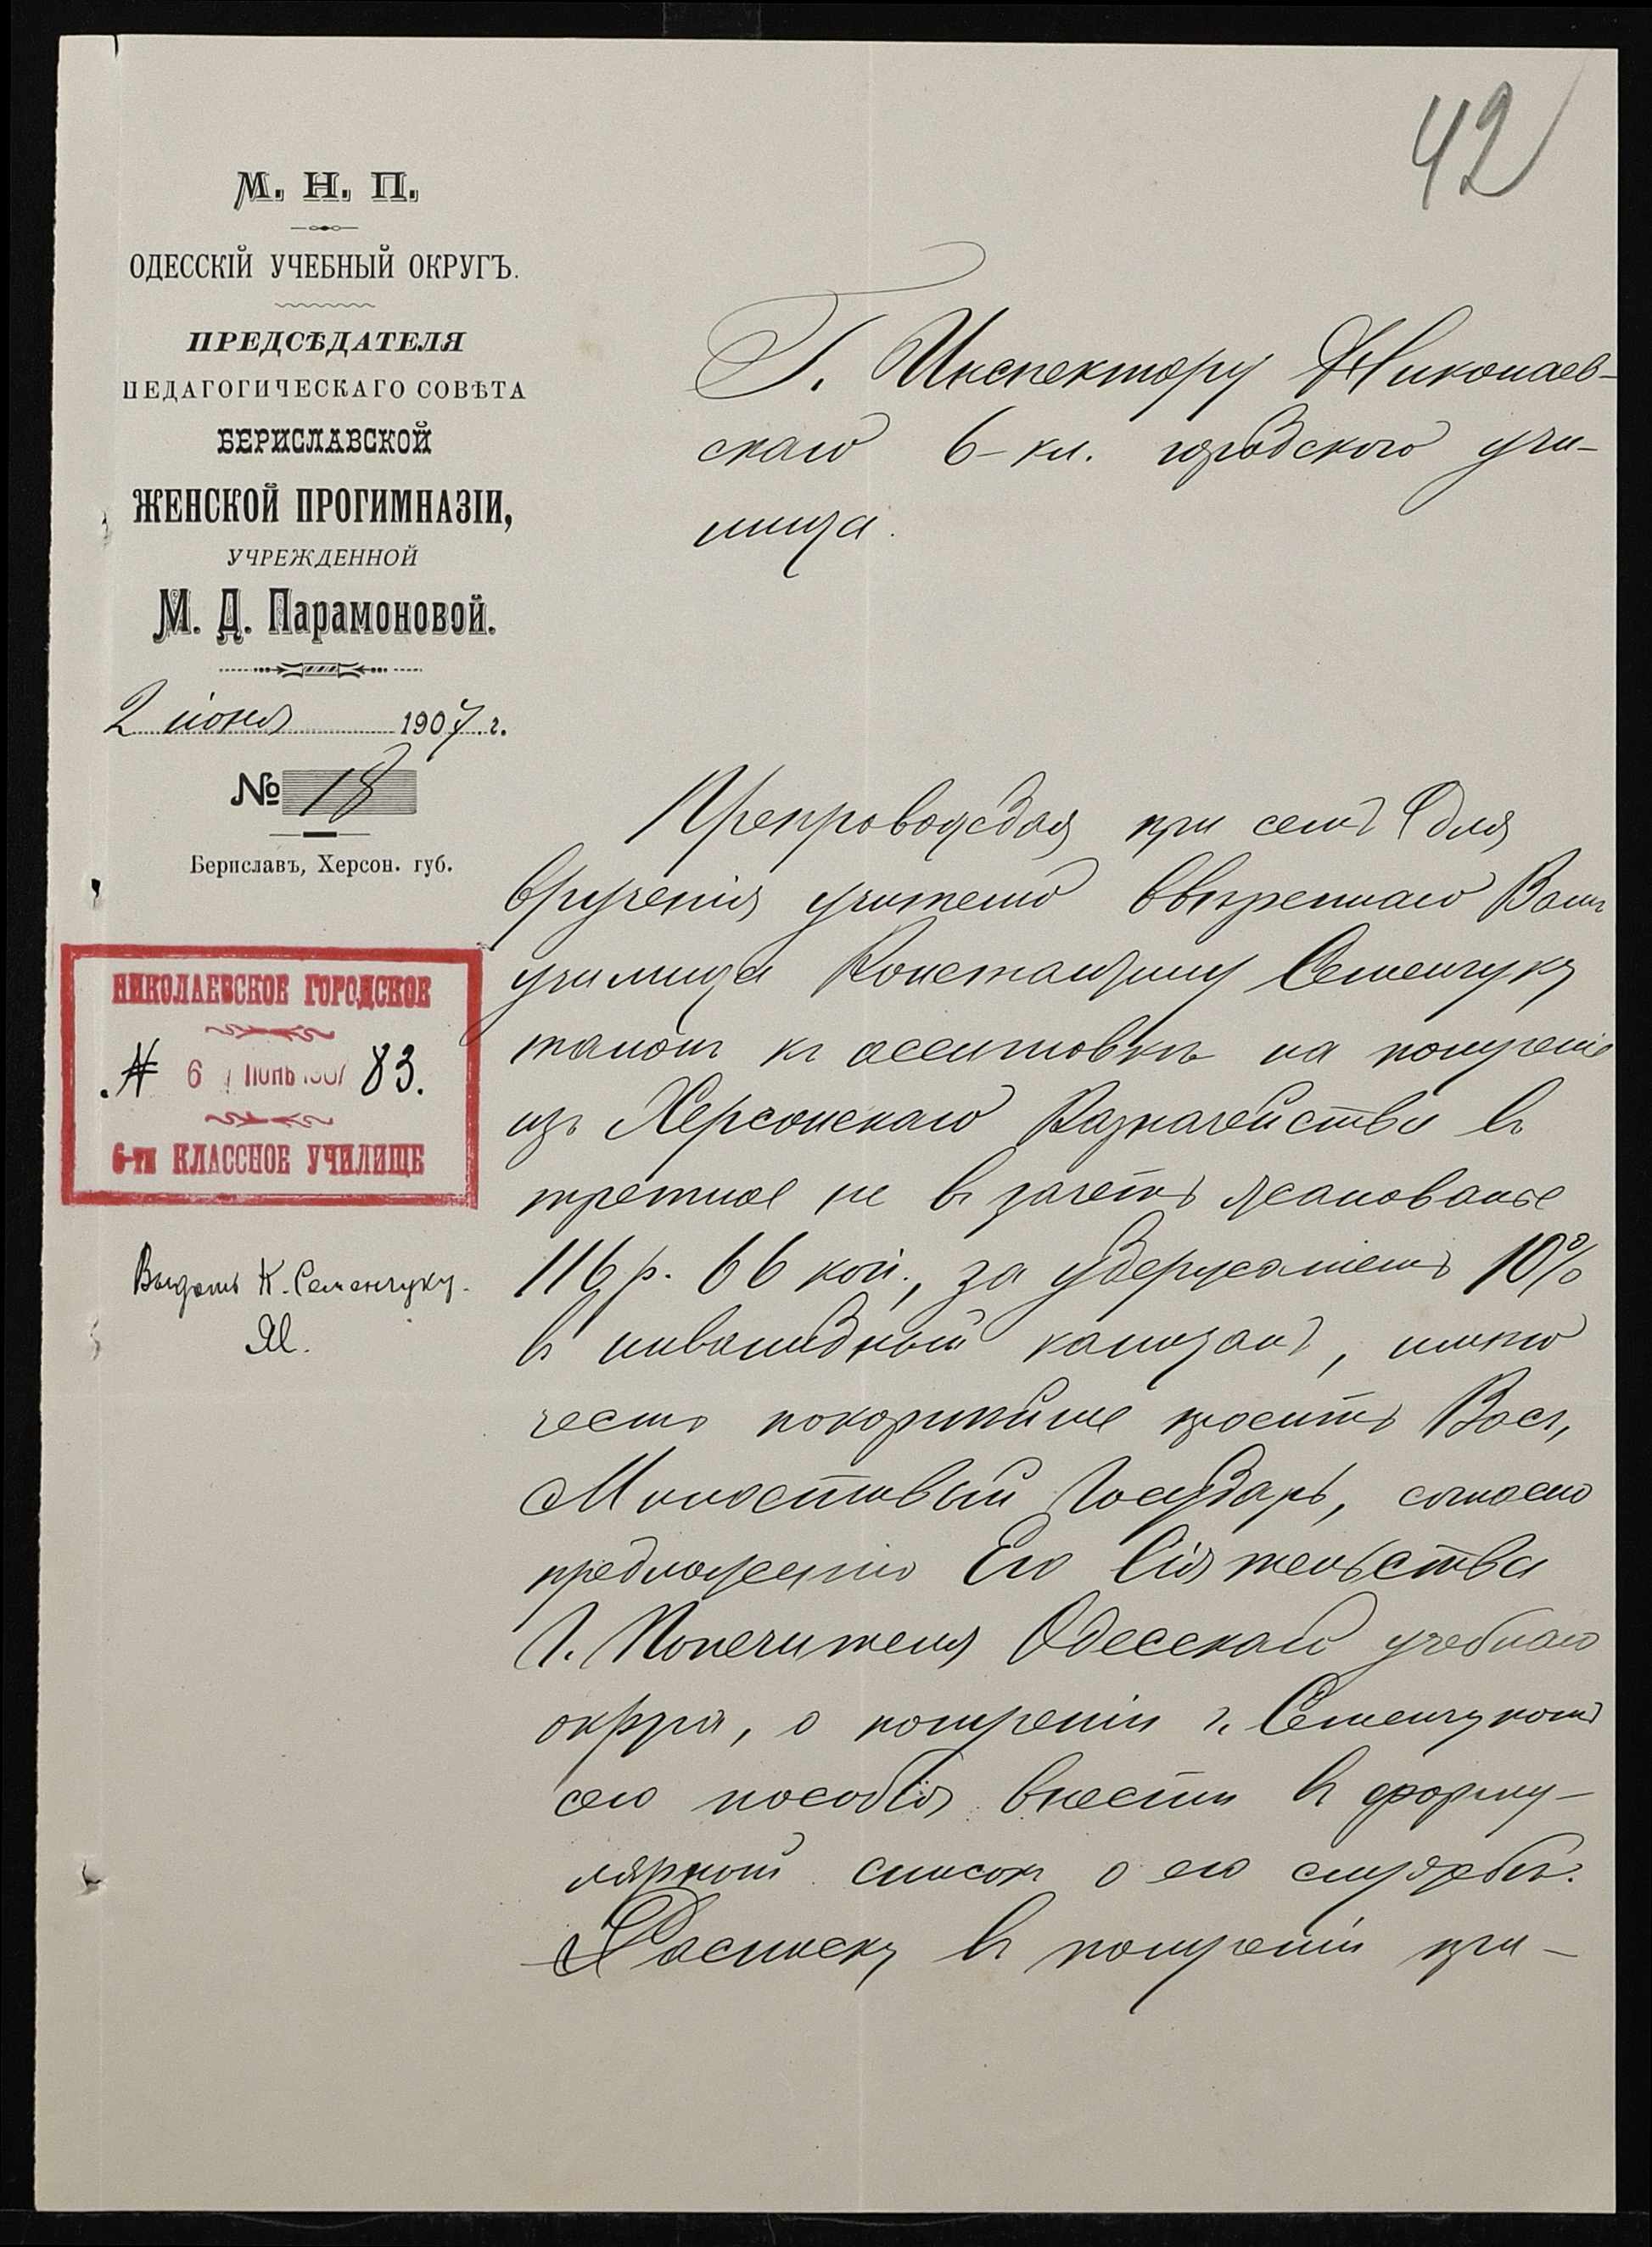 42
М. Н. П.
ОДЕССКІЙ УЧЕБНЫЙ ОКРУГЪ.
ПРЕДСѢДАТЕЛЯ
ПЕДАГОГИЧЕСКАГО СОВѢТА
БЕРИСЛАВСКОЙ
ЖЕНСКОЙ ПРОГИМНАЗІИ,
УЧРЕЖДЕННОЙ
М. Д. Парамоновой.
2 іюня 1907 г.
№ 18
Бериславъ, Херсон. губ.
НИКОЛАЕВСКОЕ ГОРОДСКОЕ
№ 6 ІЮНЬ 1907 83.
6-ти КЛАССНОЕ УЧИЛИЩЕ
Выдать К. Семенчуку.
Г. Инспектору Николаев-
скаго 6-кл. городского учи-
лища.
Препровождая при семъ для
врученія учителю ввѣреннаго Вамъ
училища Константину Семенчуку
талонъ къ ассигновкѣ на полученіе
изъ Херсонскаго Казначейства въ
третное не въ зачетъ жалованье
116 р. 66 коп., за удержаніемъ 10%
въ инвалидный капиталъ, имѣю
честь покорнѣйше просить Васъ,
Милостивый Государь, согласно
предложенію Его Сіятельства
Г. Попечителя Одесскаго учебнаго
округа, о полученіи г. Семенчукомъ
сего пособія внести въ форму-
лярный списокъ о его службѣ.
Расписку въ полученіи при-